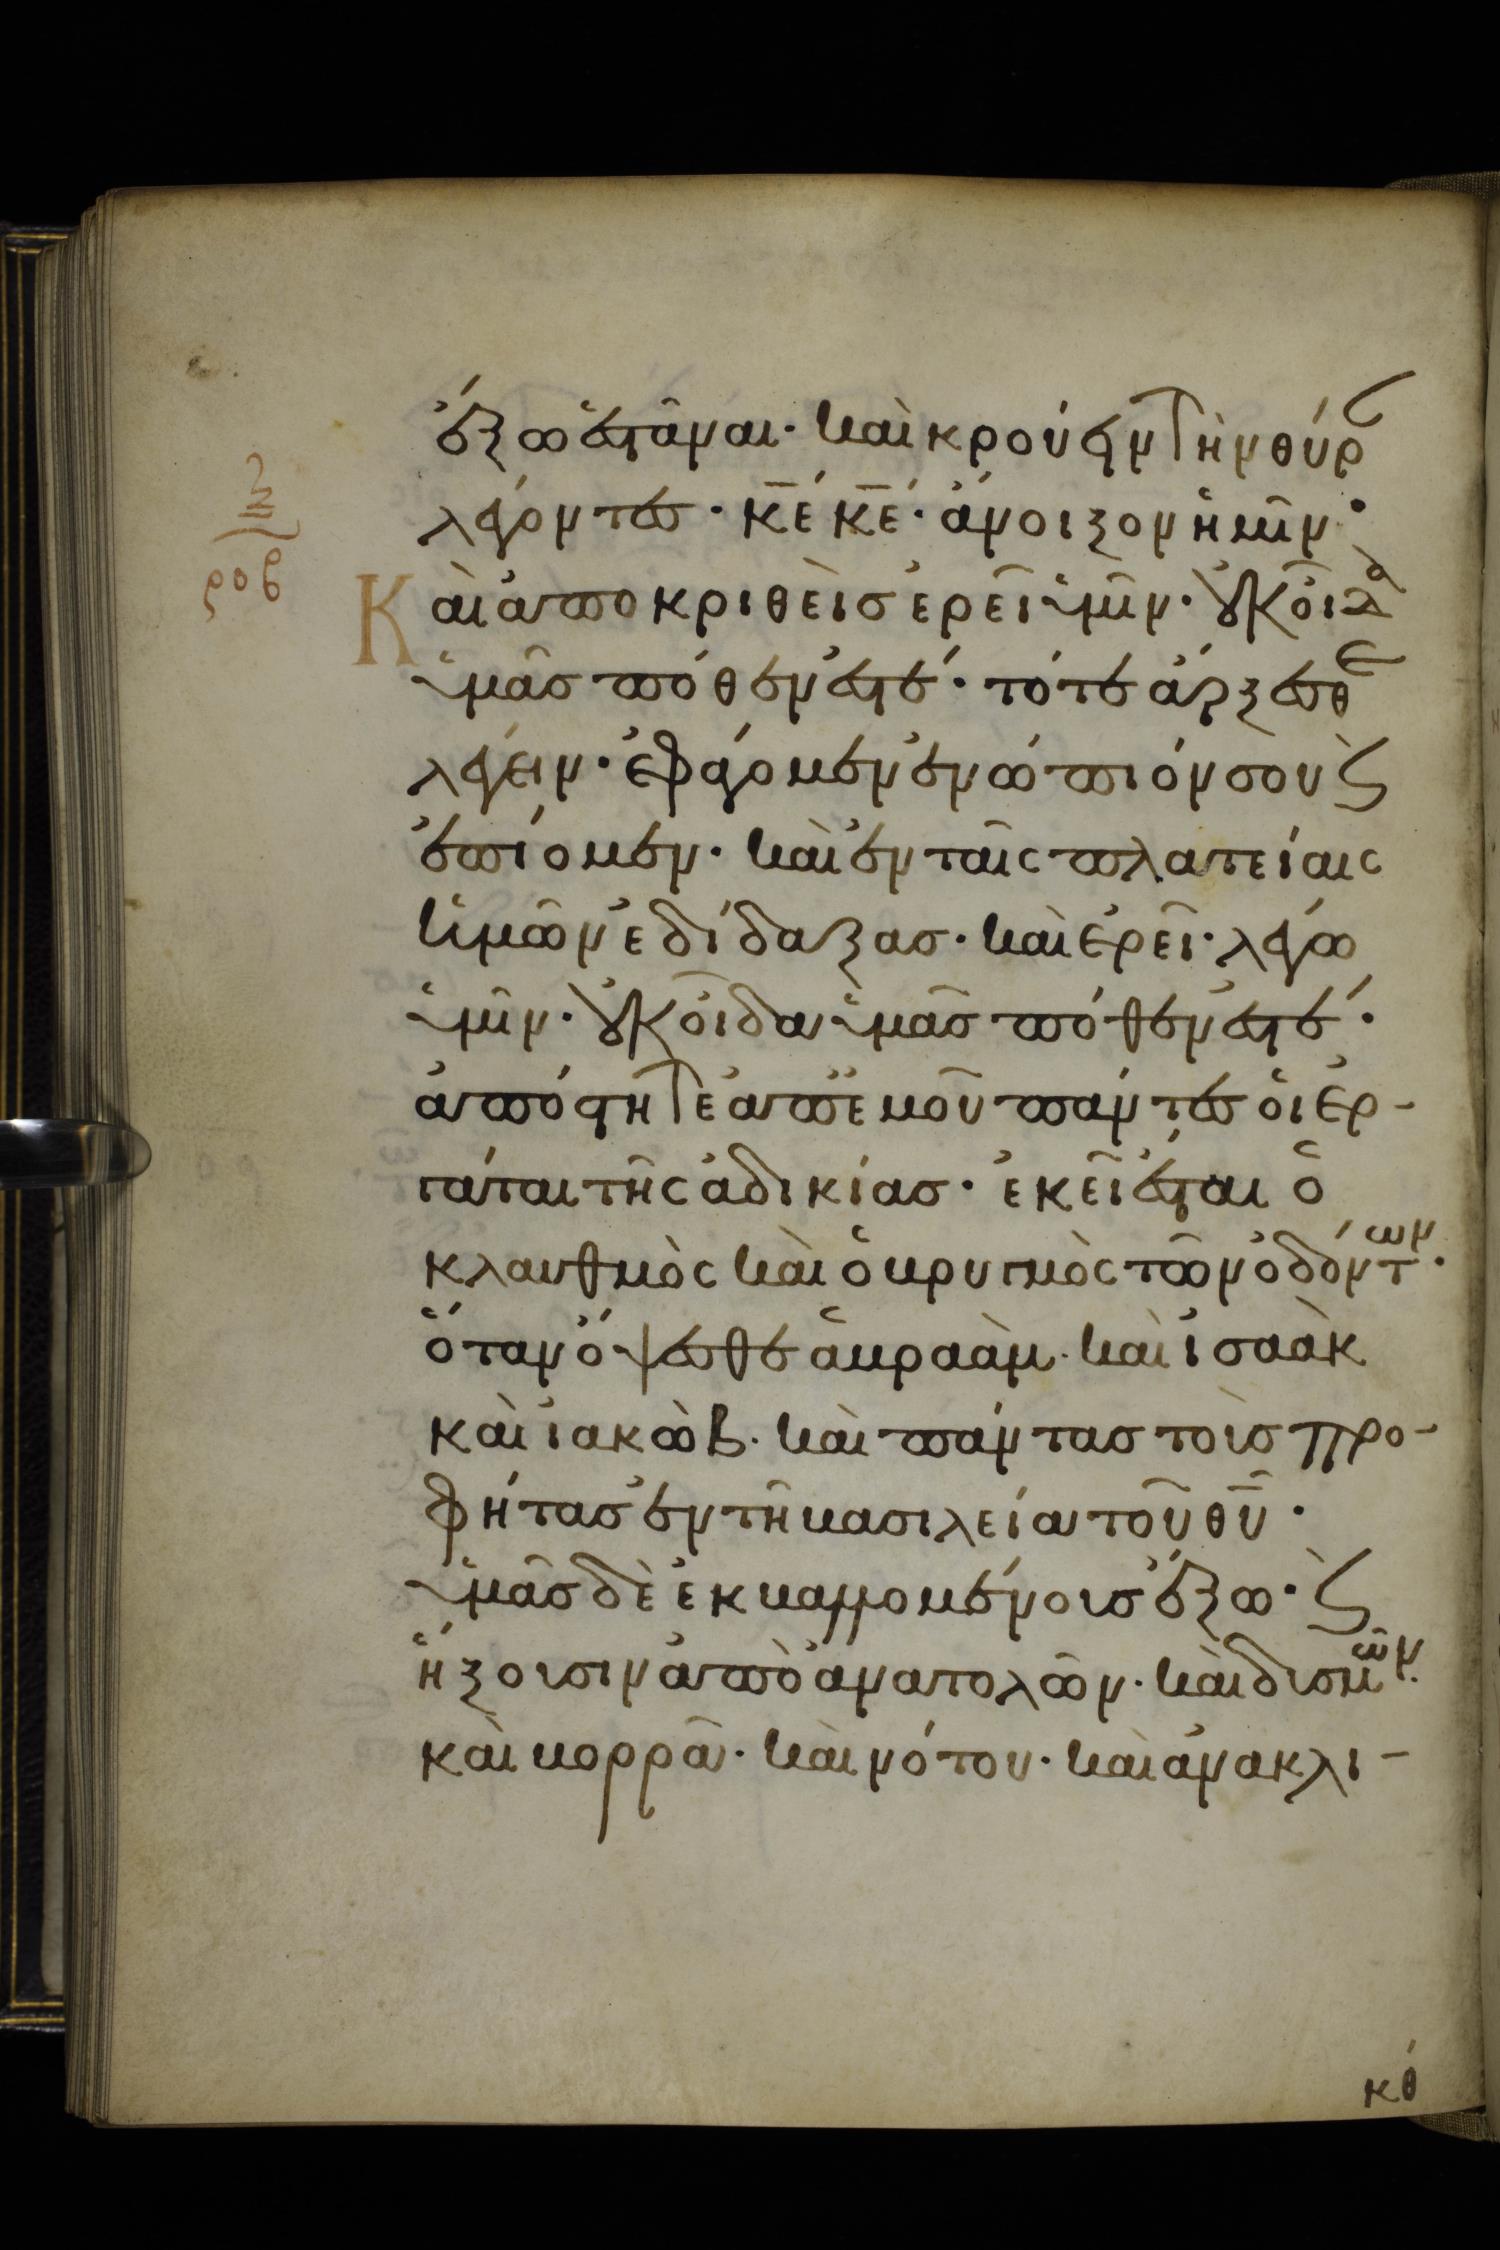 ἔξω ἑστάναι· καὶ κρούειν τὴν θύρ
λέγοντες· κ̅ε̅ κ̅ε̅· ἄνοιξον ἡμῖν·
Καὶ ἀποκριθεὶς ἐρεῖ ὑμῖν· οὐκ οἶδα
ροβ
ὑμᾶς πόθεν ἐστέ· τότε ἄρξεσθε
λέγειν· ἐφάγομεν ἐνώπιόν σου ϗ
ἐπίομεν· καὶ ἐν ταῖς πλατείαις
ἡμῶν ἐδίδαξας· καὶ ἐρεῖ· λέγω
ὑμῖν· οὐκ οἶδα ὑμᾶς πόθεν ἐστέ·
ἀπόστητε ἀπ' ἐμοῦ πάντες οἱ ἐρ-
γάται τῆς ἀδικίας· ἐκεῖ ἔσται ὁ
κλαυθμὸς καὶ ὁ βρυγμὸς τῶν ὀδόντων·
ὅταν ὄψεσθε ἀβραὰμ· καὶ ἰσαὰκ
καὶ ἰακὼβ· καὶ πάντας τοὺς προ-
φήτας ἐν τῆ βασιλεία τοῦ θ̅υ̅·
ὑμᾶς δὲ ἐκβαλλομένους ἔξω· ϗ
ἥξουσιν ἀπὸ ἀνατολῶν· καὶ δυσμῶν·
καὶ βορρᾶ· καὶ νότου· καὶ ἀνακλι-
κθ